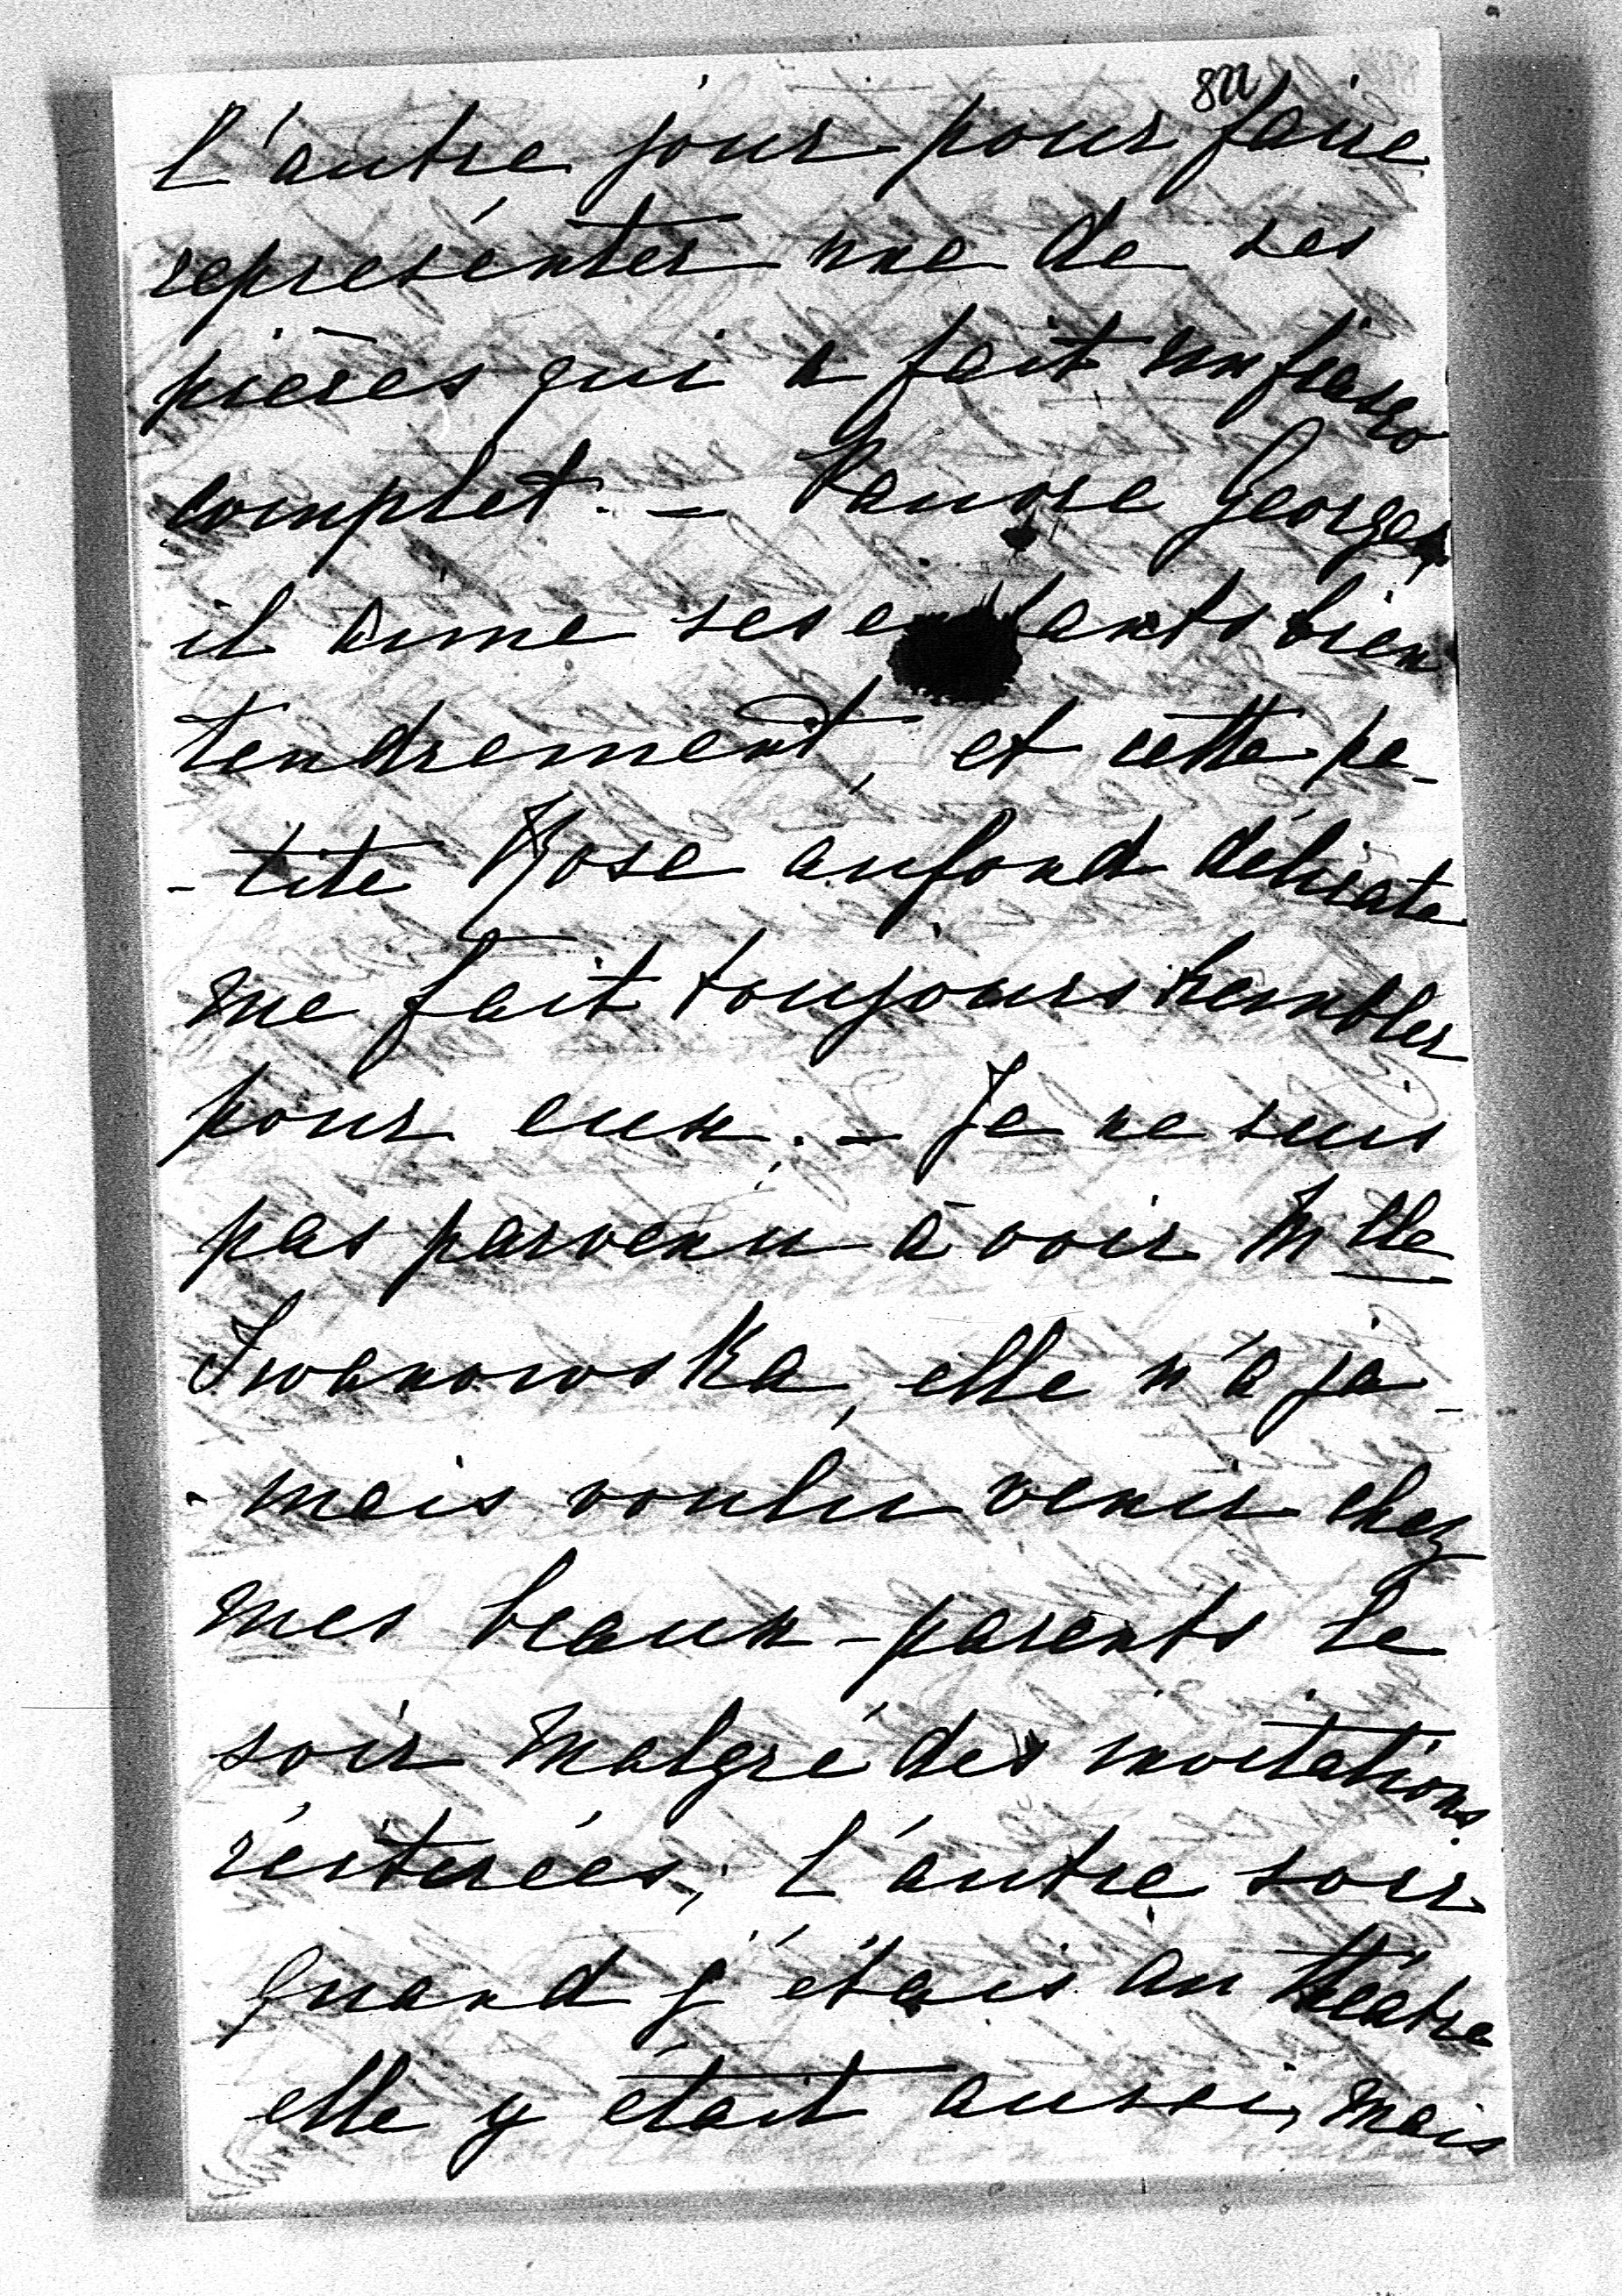 822
L'autre jour pour faire
représenter une de ses
pièces qui a fait un fiasco
complet. — Pauvre Georges,
il aime ses enfants bien
tendrement, et cette pe-
-tite Rose au fond délicate
me fait toujours trembler
pour eux. — Je ne suis
pas parvenu à voir Mlle
Iwanowska, elle n'a ja-
-mais voulu venir chez
mes beaux-parents le
soir malgré des invitations
réiterées; L'autre soir
quand j'étais au théâtre
elle y était aussi, mais